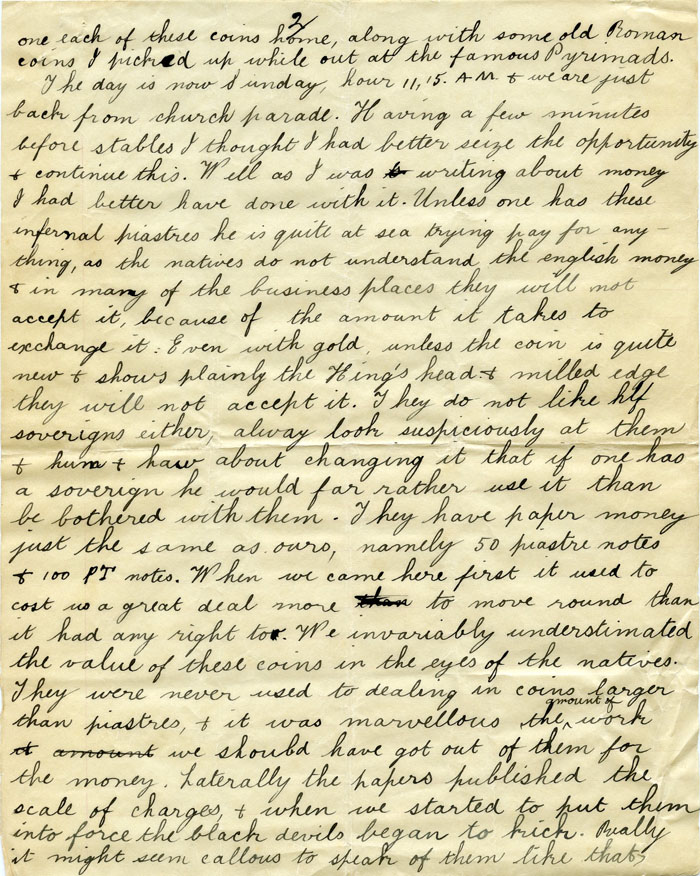 2
one each of these coins home, along with some old Roman
coins I picked up while out at the famous Pyrimads.
The day is now Sunday, hour 11,15. AM & we are just
back from church parade. Having a few minutes
before stables I thought I had better seize the opportunity
& continue this. Well as I was writing about money
I had better have done with it. Unless one has these
infernal piastres he is quite at sea trying pay for any-
thing, as the natives do not understand the english money
& in many of the business places they will not
accept it, because of the amount it takes to
exchange it. Even with gold, unless the coin is quite
new & shows plainly the King's head & milled edge
they will not accept it. They do not like hlf
soverigns either, alway look suspiciously at them
& hum & haw about changing it that if one has
a soverign he would far rather use it than
be bothered with them. They have paper money
just the same as ours, namely 50 piastre notes
& 100 PT notes. When we came here first it used to
cost us a great deal more than to move round than
it had any right to. We invariably understimated
the value of these coins in the eyes of the natives.
They were never used to dealing in coins larger
than piastres, & it was marvellous the amount of work
it amount we should have got out of them for
the money. Laterally the papers published the
scale of charges, & when we started to put them
into force the black devils began to kick. Really
it might seem callous to speak of them like that